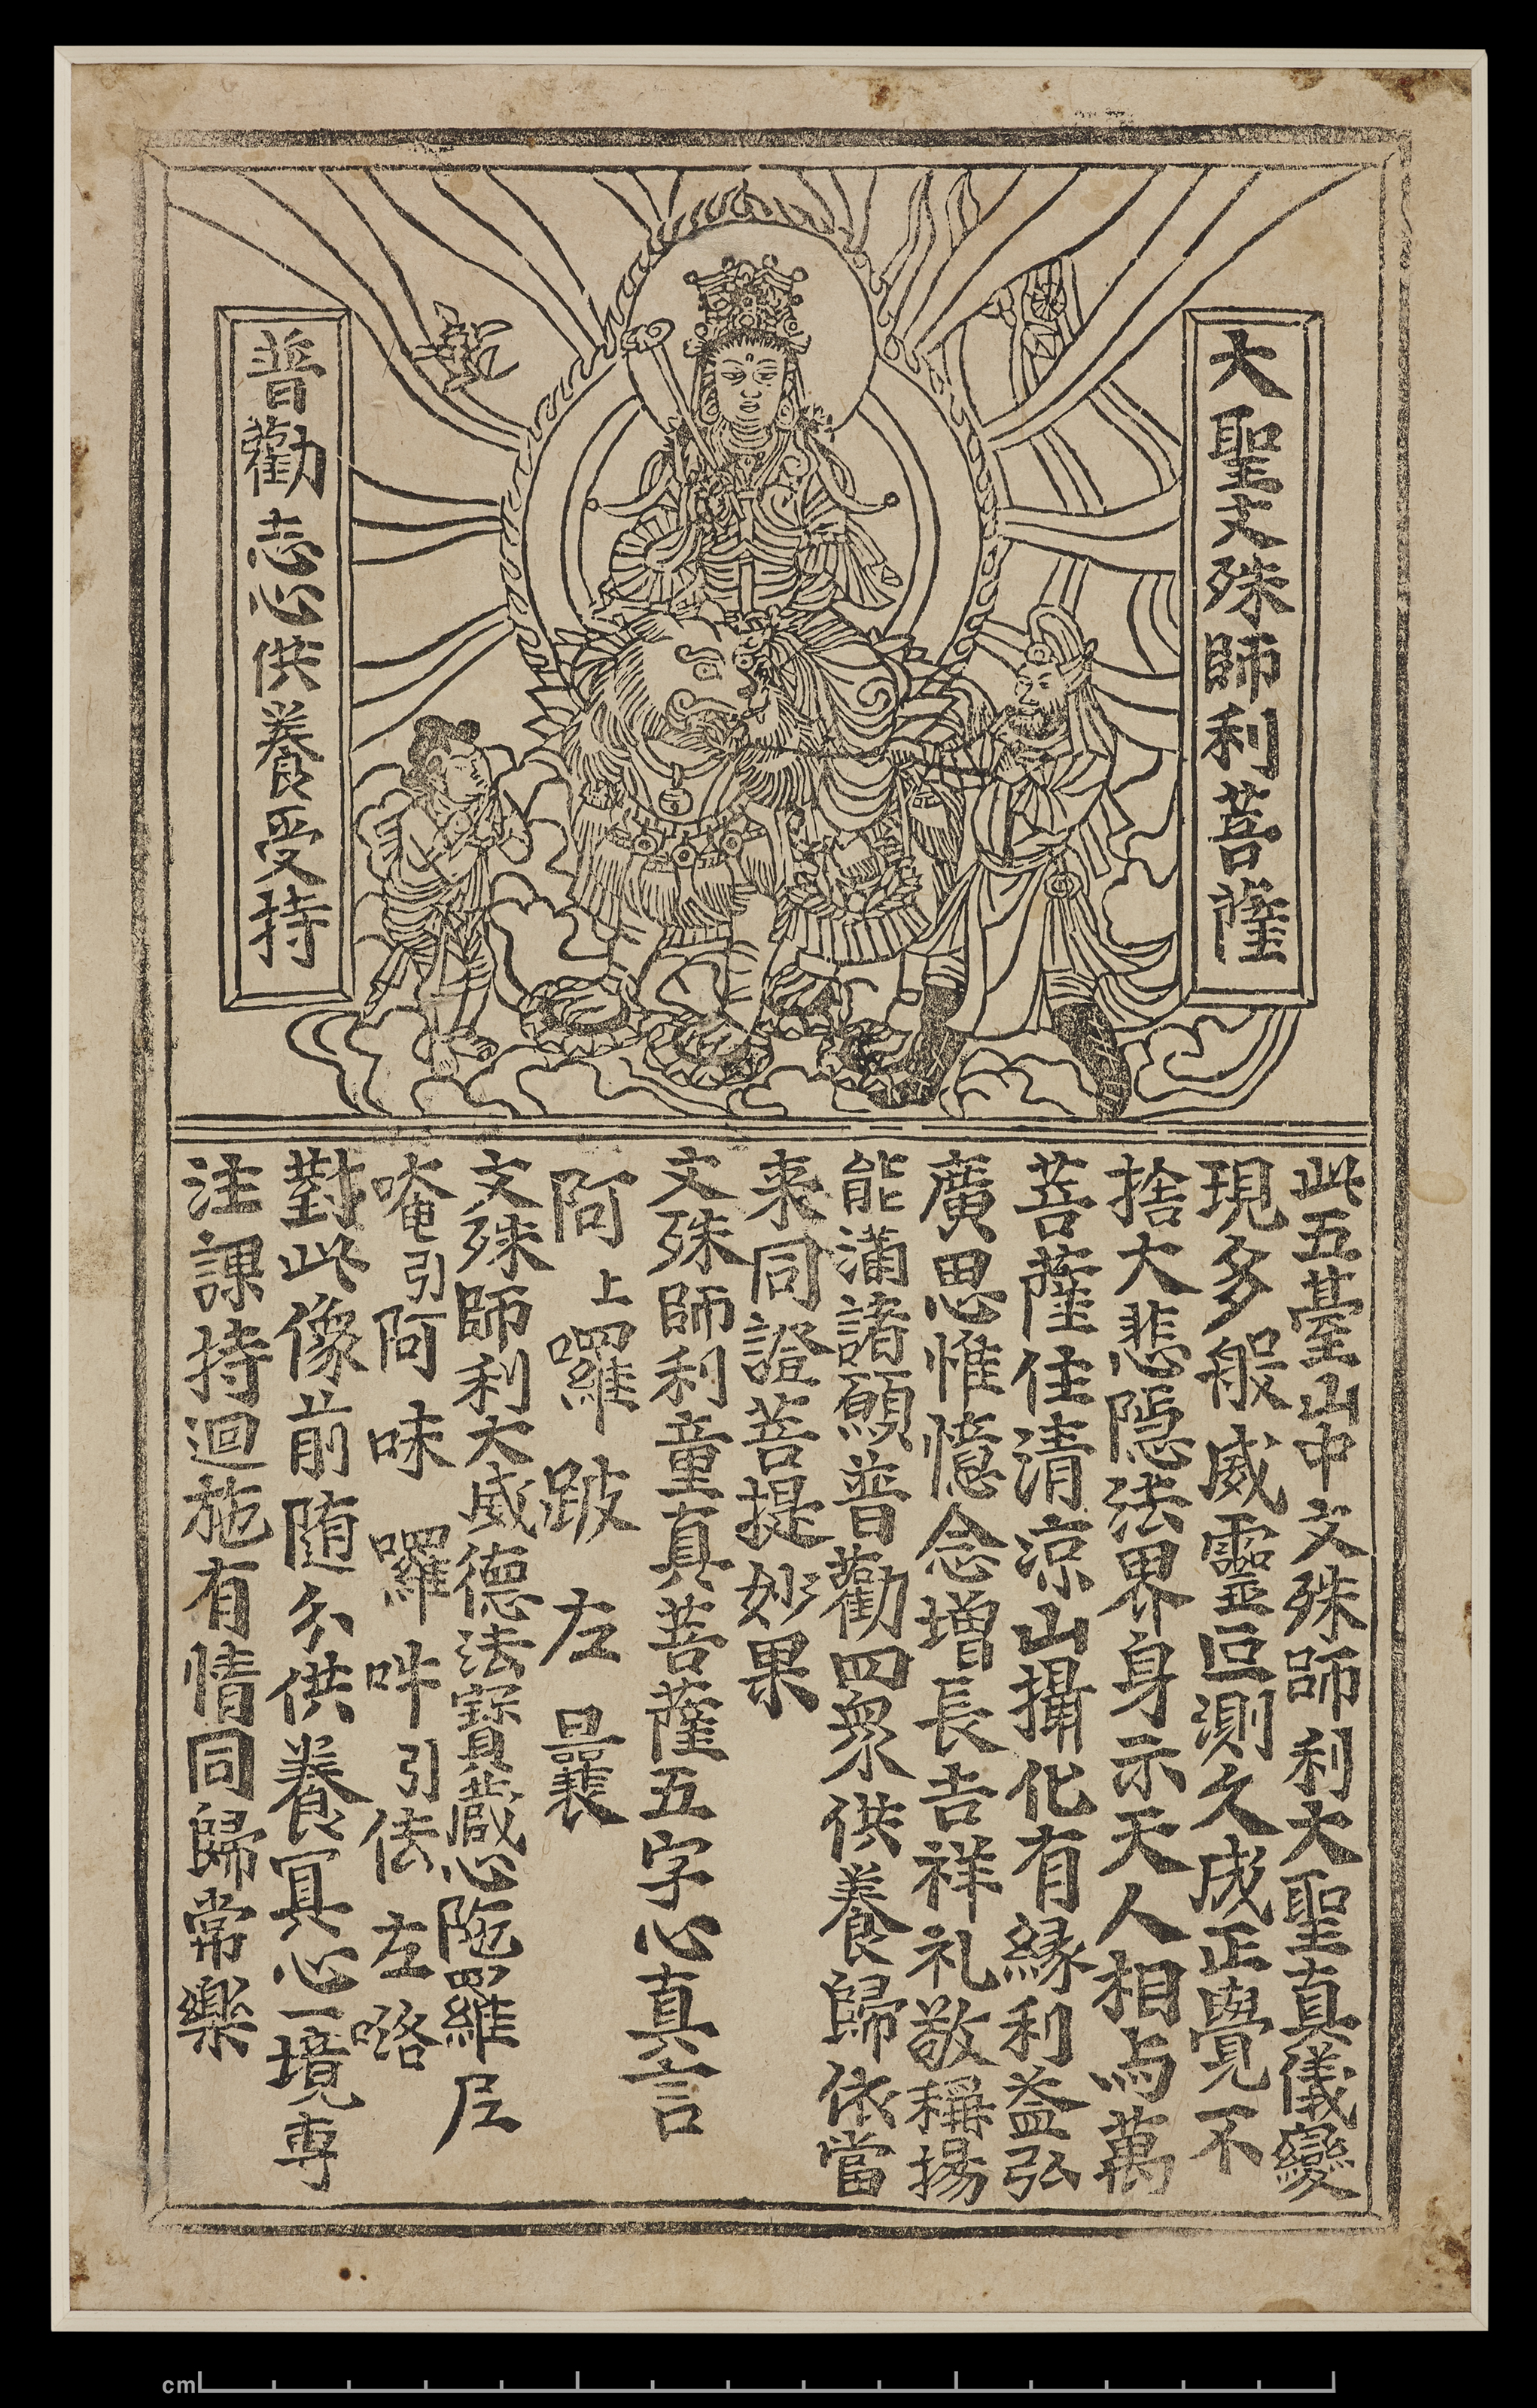 大聖文殊師利菩薩
普勸志心供養受持
此五臺山中文殊師利大聖真儀變
現多般威靈叵測久成正覺不
捨大悲隱法界身示天人相与萬
菩薩住清涼山攝化有緣利益弘
廣思惟憶念增長吉祥礼敬稱揚
能滿諸願普勸四衆供養歸依當
来同證菩提妙果
文殊師利童真菩薩五字心真言
阿上囉跛左曩
文殊師利大威德法寶藏心陁羅尼
唵引阿味囉吽引佉左咯
對此像前随分供養冥心一境專
注課持迴施有情同歸常樂
cm